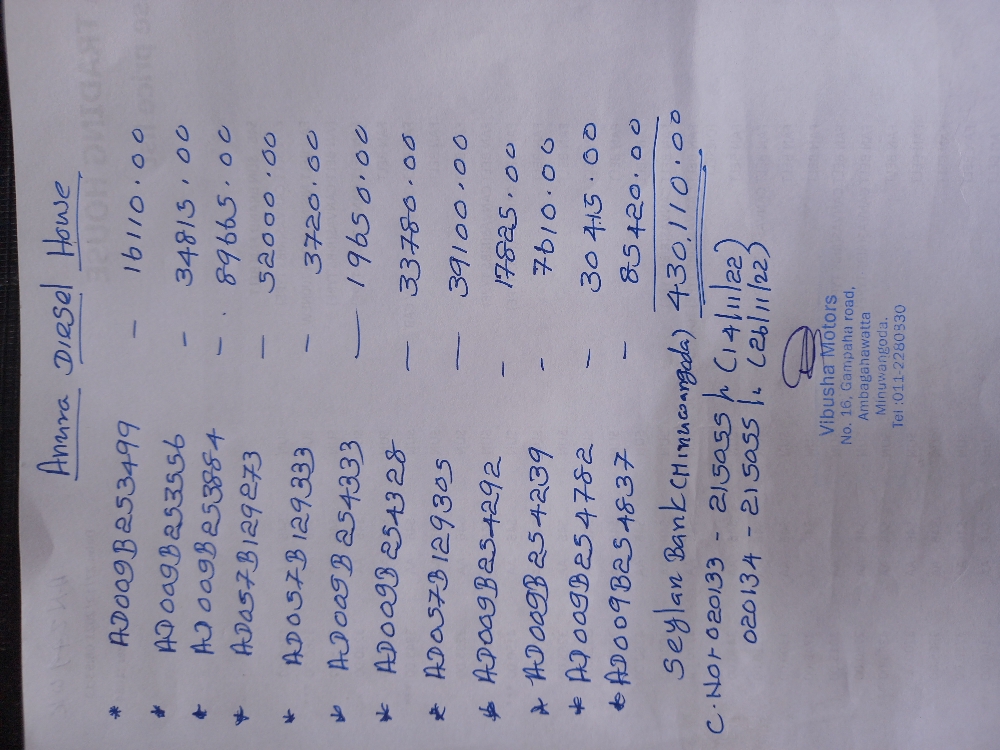 Anura Diesel House
* AD009B253499 - 16110.00
* AD009B253556 - 34815.00
* AD009B253884 - 89665.00
* AD057B129273 - 52000.00
* AD057B129333 - 3720.00
* AD009B254333 - 19650.00
* AD009B254328 - 33780.00
* AD057B129305 - 39100.00
* AD009B254292 - 17825.00
* AD009B254239 - 7610.00
* AD009B254782 - 30415.00
* AD009B254837 - 85420.00
Seylan Bank (Minuwangoda) 430,110.00
C.No:- 020133 - 215055 /- (14/11/22)
020134 - 215055 /- (26/11/22)
Vibusha Motors
No. 16, Gampaha road,
Ambagahawatta
Minuwangoda.
Tel :011-2280330